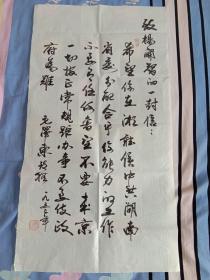 致杨开智的一封信：
希望你在湘听候中共湖南
省委分配合乎你能力的工作
不要有任何奢望不要来京
一切按正常规矩办事不要使政
府为难
毛泽东
一九五〇年